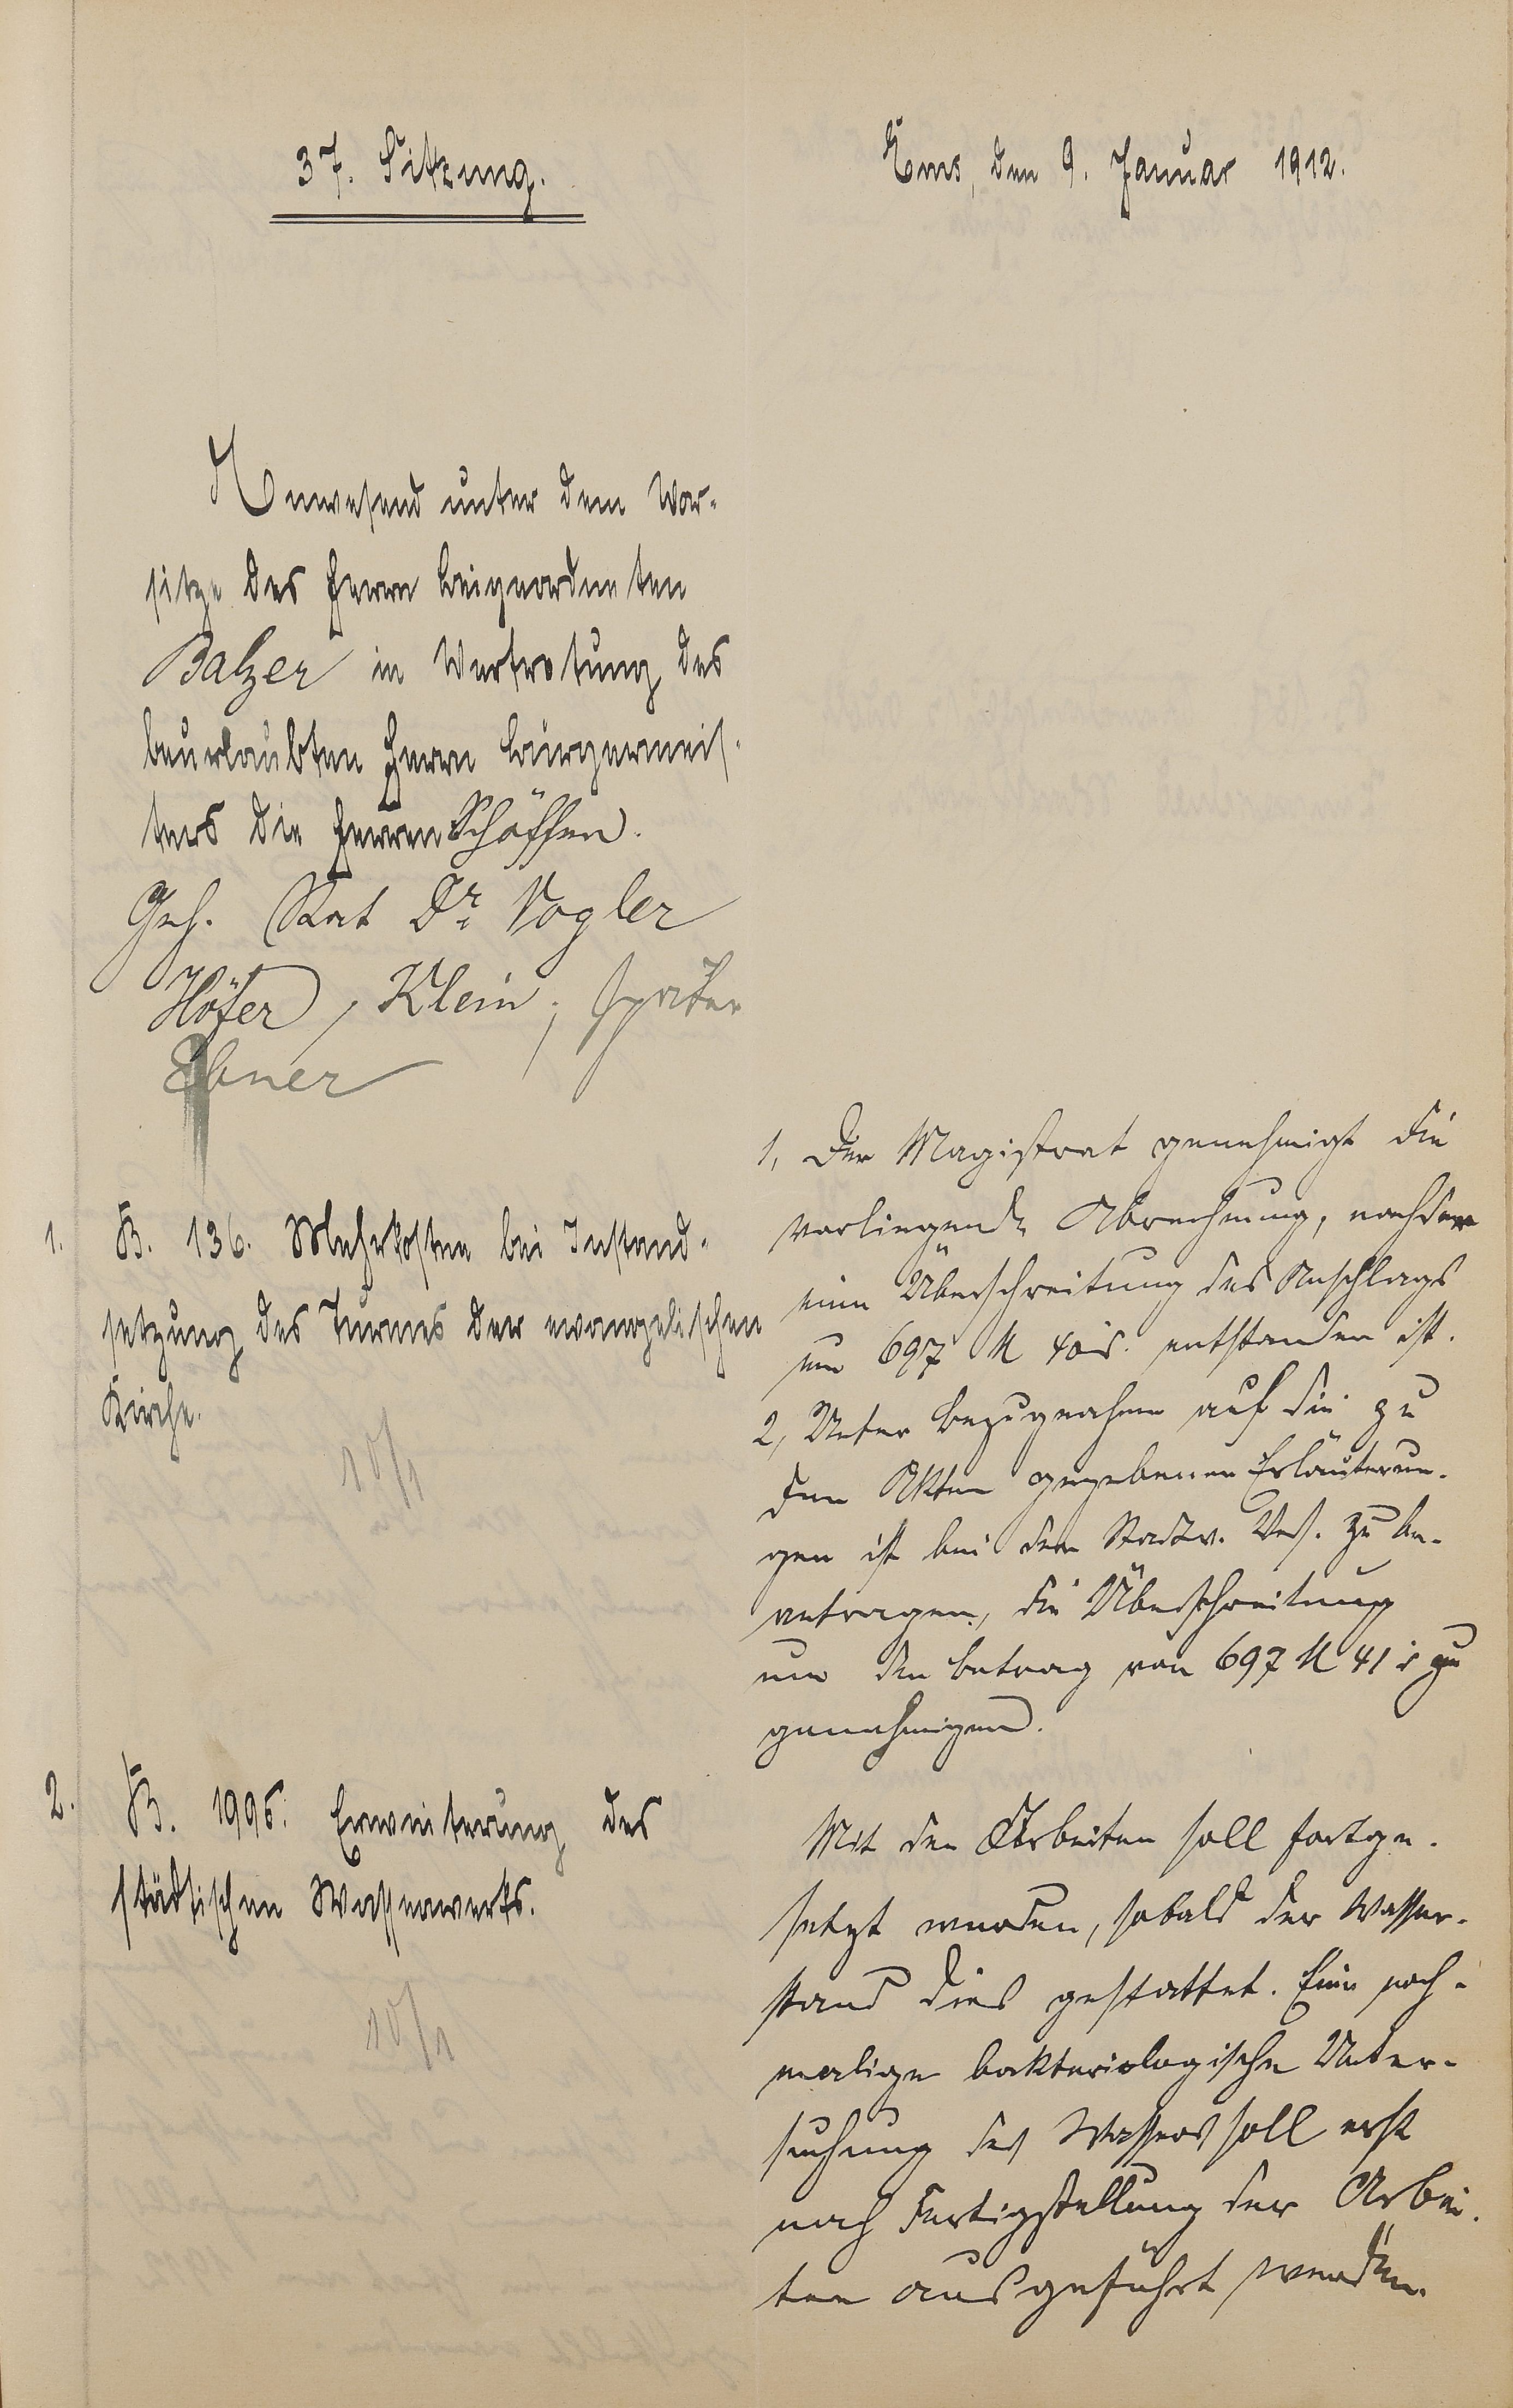 37. Sitzung.
Ems, den 9. Januar 1912.
Anwesend unter dem Vor-
sitze des Herrn Beigeordneten
Balzer in Vertretung des
beurlaubten Herrn Bürgermeis-
ters die Herren Schöffen.
Geh. Rat Dr. Vogler
Höfer, Klein; später
Ebner
1. B. 136. Mehrkosten bei Instand-
setzung des Turmes der evangelischen
Kirche.
10/1
1, Der Magistrat genehmigt die
vorliegende Abrechnung, nachdem
eine Überschreitung des Anschlags
um 697 M entstanden ist.
2, Unter Bezugnahme auf die zu
den Akten gegebenen Erläuterun-
gen ist bei der Stadtv. Vers. zu be-
antragen, die Überschreitung
um den Betrag von 697 M 41 zu
genehmigen.
2. B. 1995. Erweiterung des
städtischen Wasserwerks.
10/1
Mit den Arbeiten soll fortge-
setzt werden, sobald der Wasser-
stand dies gestattet. Eine noch-
malige bakteriologische Unter-
suchung des Wassers soll erst
nach Fertigstellung der Arbei-
ten ausgeführt werden.